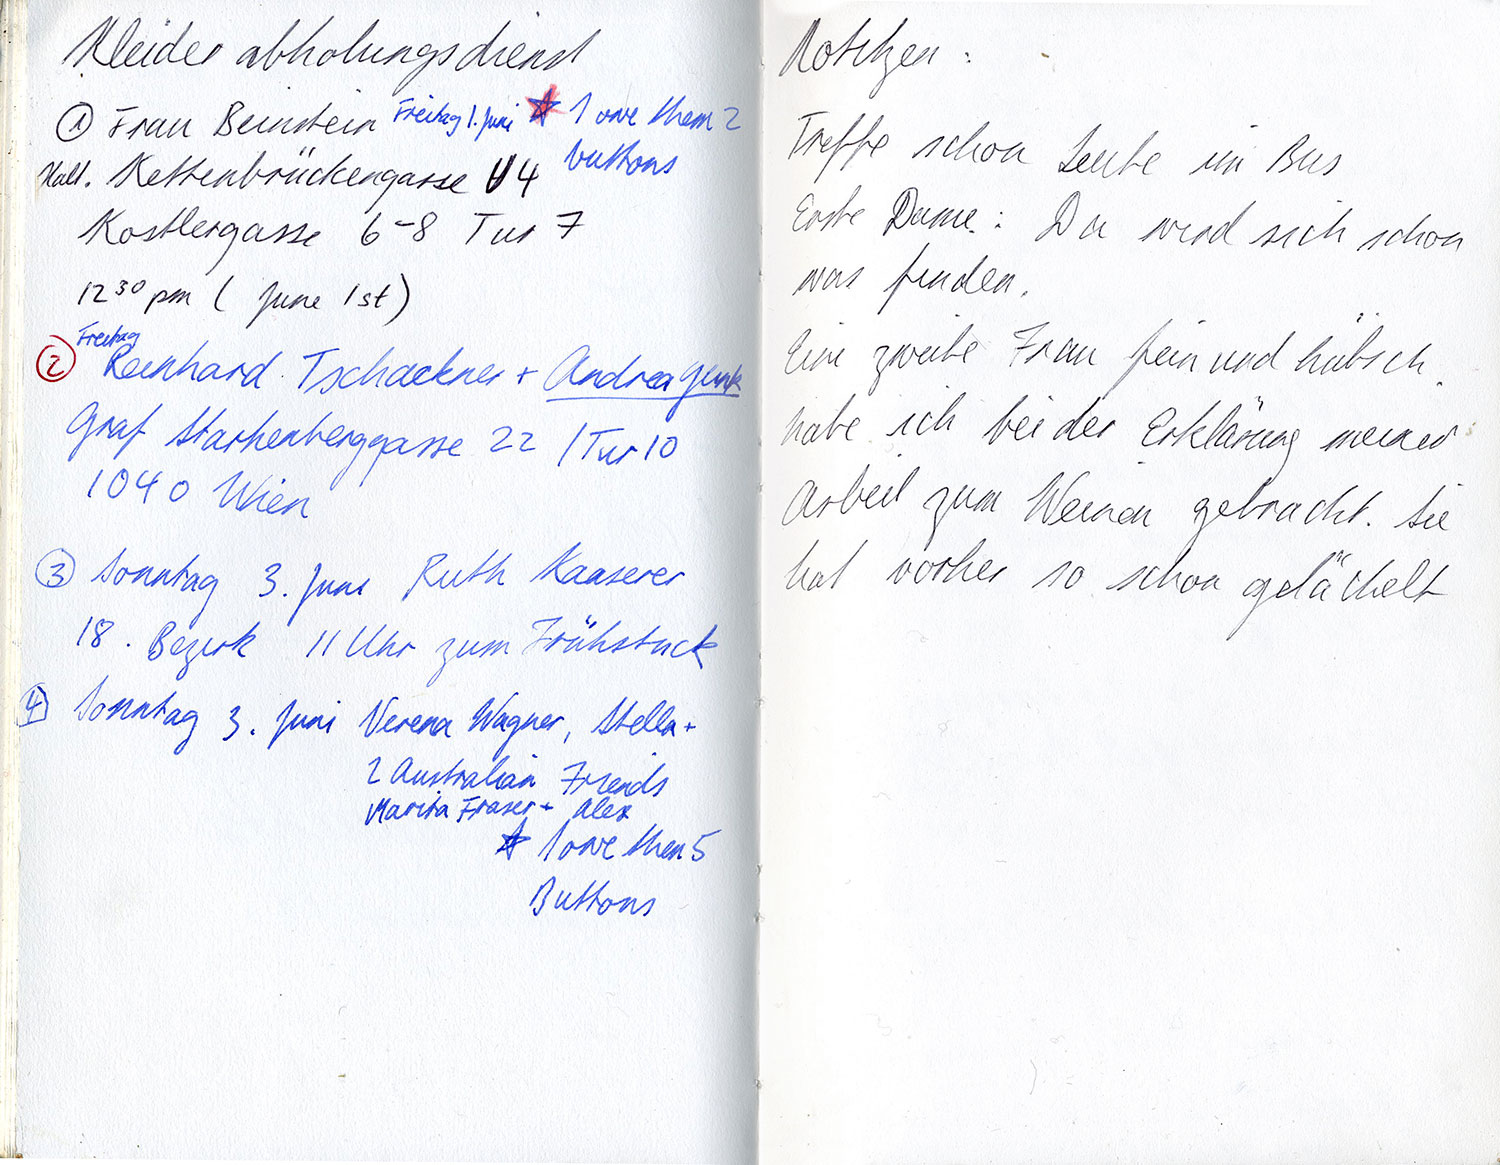 Kleiderabholungsdienst
① Frau Beinstein Freitag 1. Juni ☆ I owe them 2
buttons
Halt. Kettenbrückengasse U4
Kostlergasse 6-8 Tur 7
12 30 pm ( June 1st)
Freitag
② Reinhard Tschackner + Andrea
Graf Starhemberggasse 22 / Tur 10
1040 Wien
③ Sonntag 3. Juni Ruth Kaaserer
18. Bezirk 11 Uhr zum Frühstuck
4 Sonntag 3. Juni Verena Wagner, Stella +
2 Australian Friends
Marita Fraser + Alex
☆ I owe them 5
Buttons
Notizen :
Treffe schon Leute im Bus
Erste Dame : Da wird sich schon
was finden.
Eine zweite Frau fein und hübsch
habe ich bei der Erklärung meiner
Arbeit zum Weinen gebracht. Sie
hat vorher so schon gelächelt